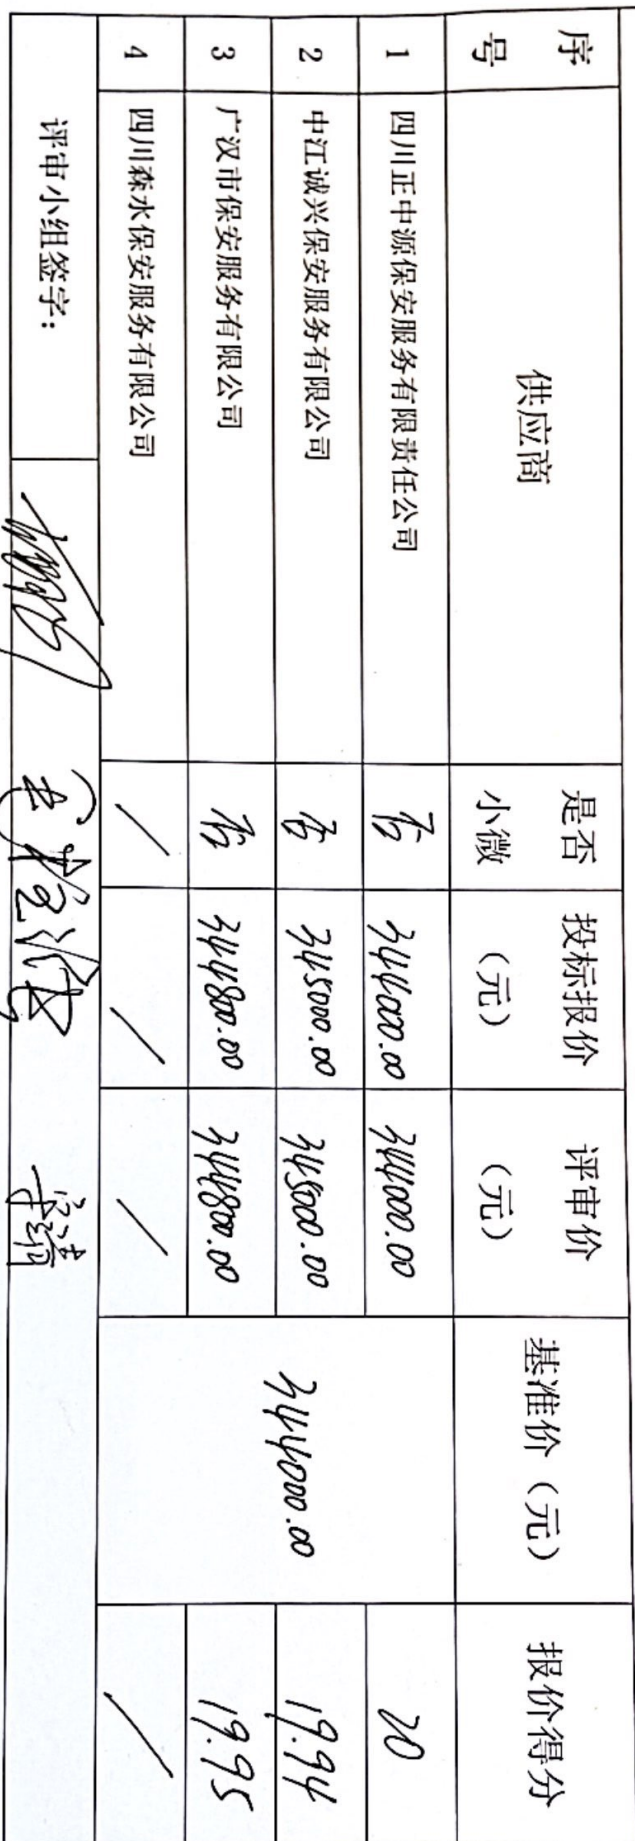 序号 供应商 是否小微 投标报价（元） 评审价（元） 基准价（元） 报价得分
1 四川正中源保安服务有限责任公司 否 344000.00 344000.00 344000.00 20
2 中江诚兴保安服务有限公司 否 345000.00 345000.00 19.94
3 广汉市保安服务有限公司 否 344800.00 344800.00 19.95
4 四川森水保安服务有限公司 / / / /
评审小组签字：